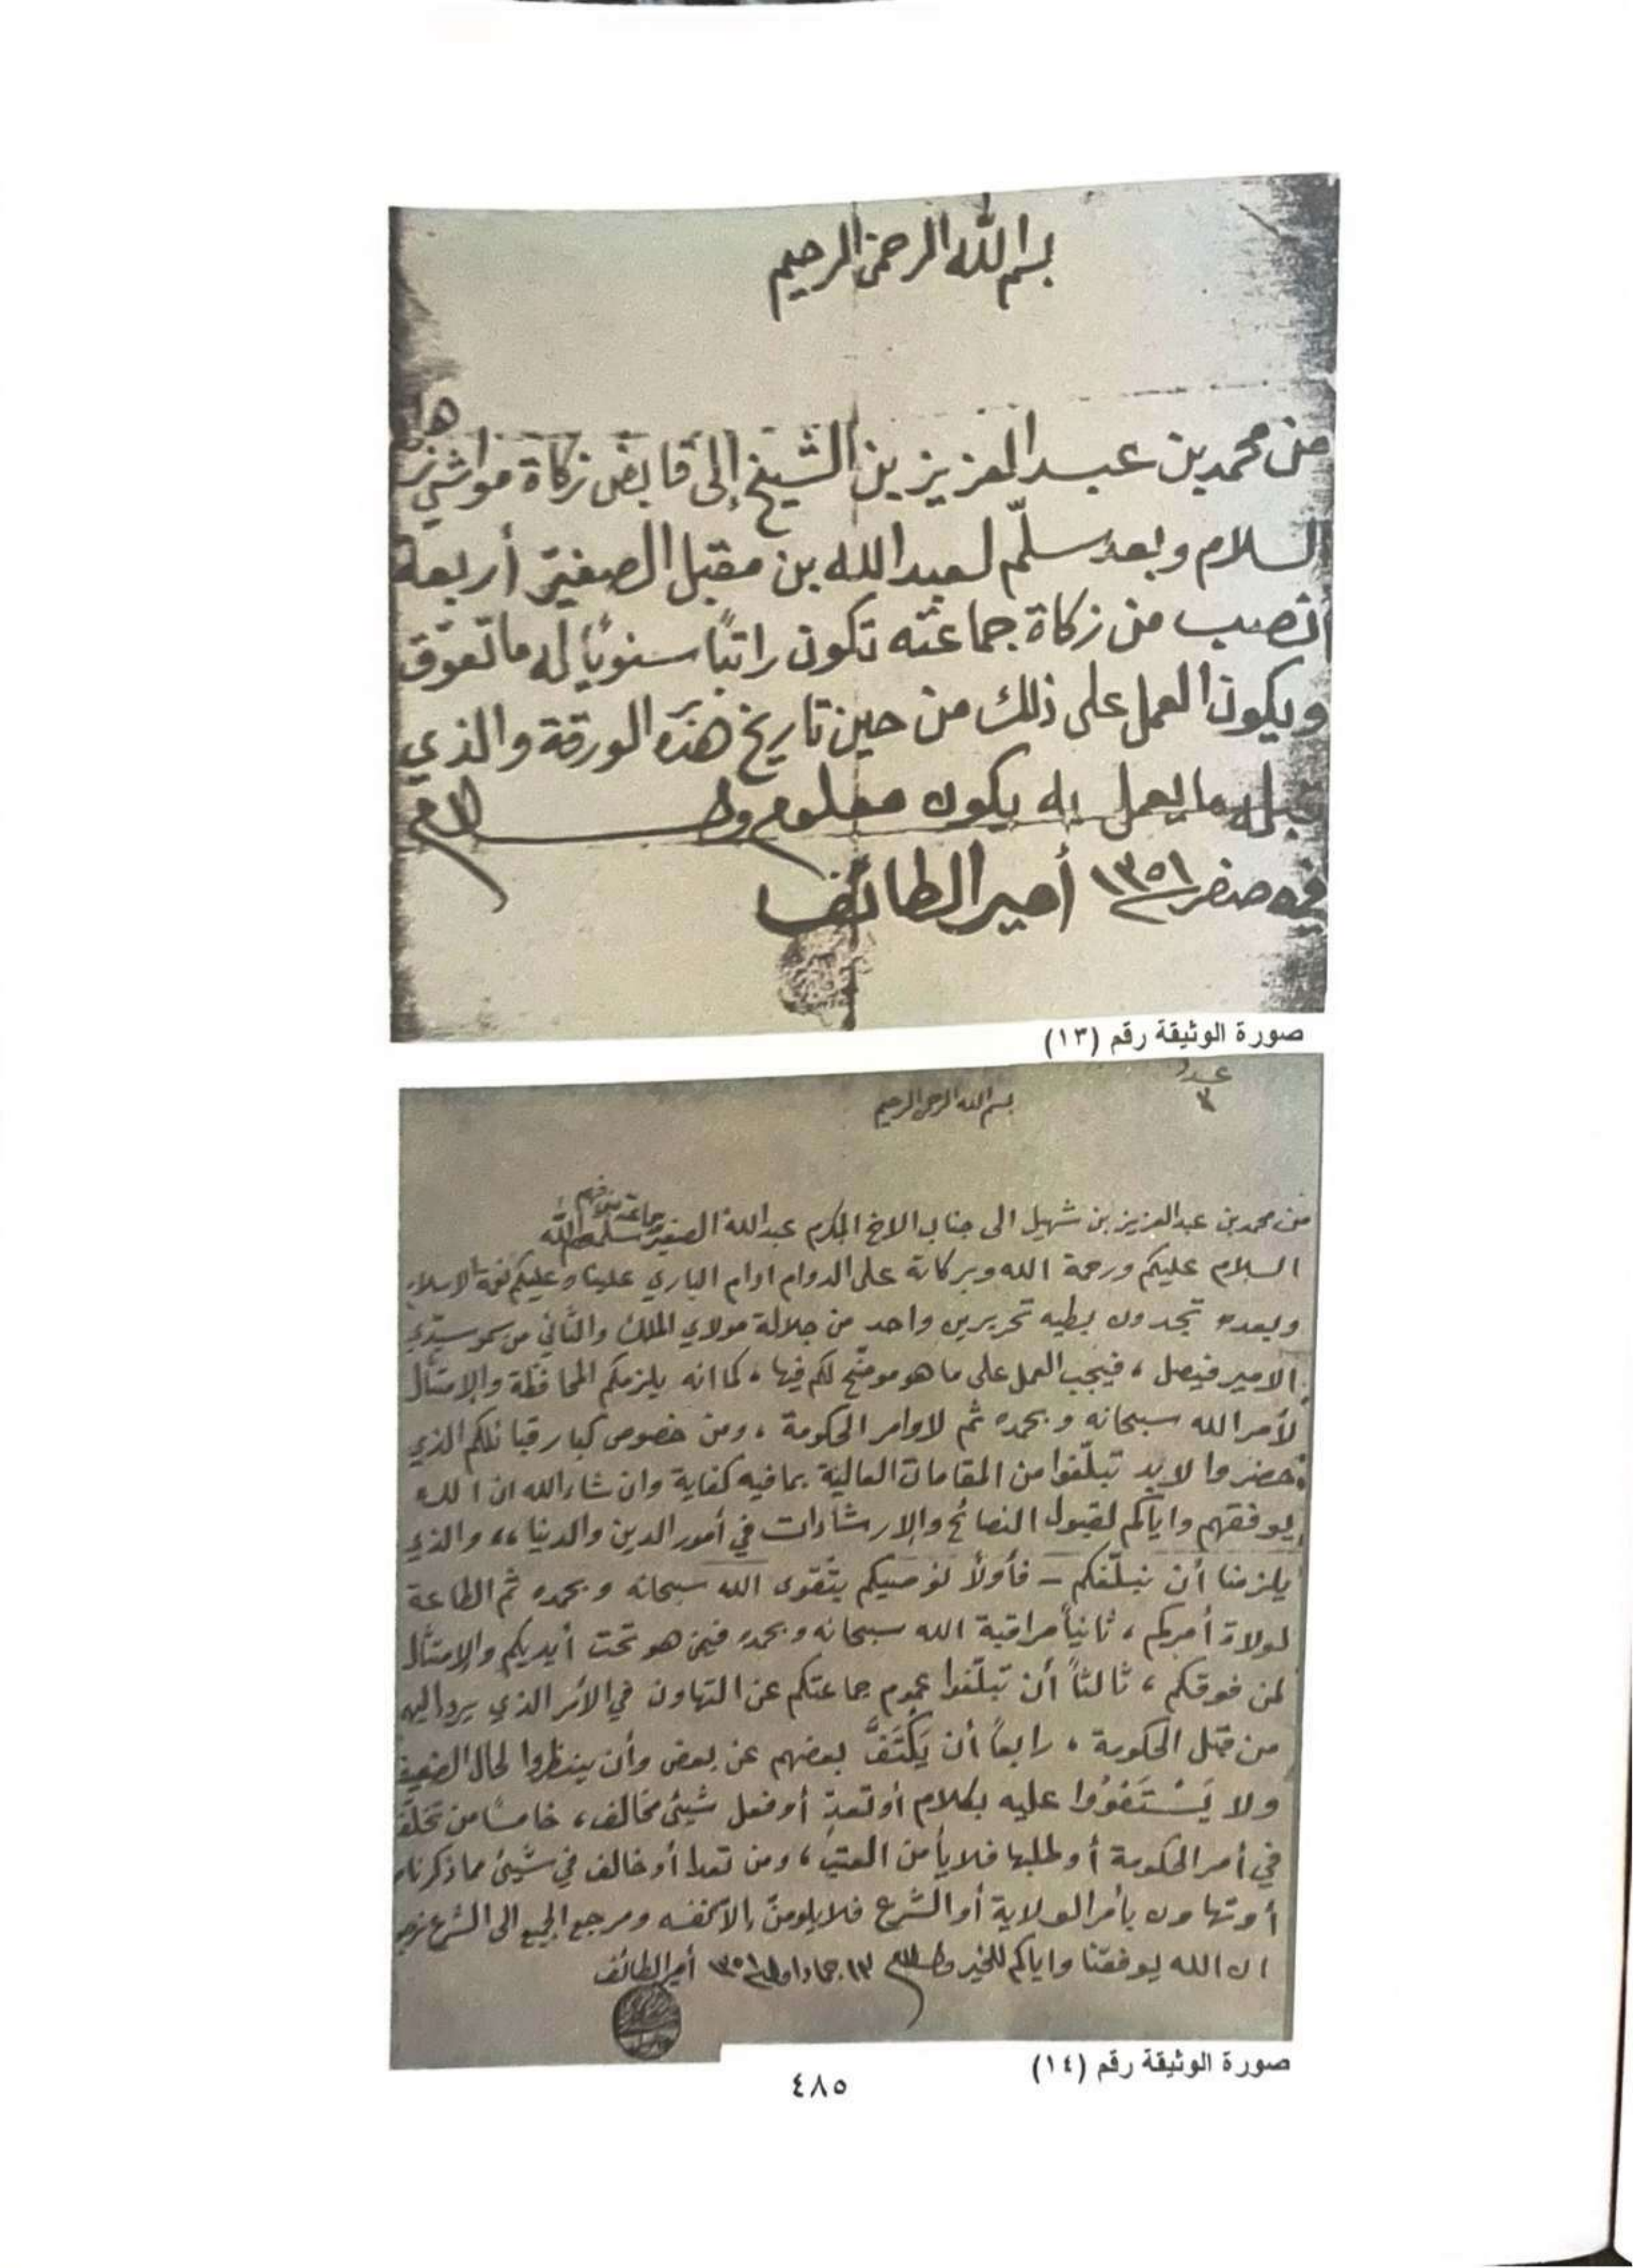 بسم الله الرحمن الرحيم
من محمد بن عبدالعزيز بن الشيخ إلى قابض زكاة مواشي
السلام وبعد سلّم لعبدالله بن مقبل الصغير أربعة
أنصب من زكاة جماعته تكون راتبًا سنويًا له ما تعوق
ويكون العمل على ذلك من حين تاريخ هذه الورقة والذي
قبل ما يعمل به يكون معلوم والسلام
في صفر ١٣٥١ أمير الطائف
صورة الوثيقة رقم (١٣)
عدد
٣
بسم الله الرحمن الرحيم
من محمد بن عبدالعزيز بن شهيل الى جناب الاخ المكرم عبدالله الصغير وجماعته سلمه الله
السلام عليكم ورحمة الله وبركاته على الدوام ادام الباري علينا وعليكم نعمة الاسلام
وبعده تجدون بطيه تحريرين واحد من جلالة مولاي الملك والثاني من سمو سيدي
الامير فيصل ، فيجب العمل على ما هو موضح لكم فيها ، كما انه يلزمكم المحافظة والإمتثال
لأمر الله سبحانه وبحمده ثم لاوامر الحكومة ، ومن خصوص كبار قبائلكم الذي
حضروا لابد تبلّغوا من المقامات العالية بما فيه كفاية وان شاء الله ان الله
يوفقهم واياكم لقبول النصائح والإرشادات في أمور الدين والدنيا ،، والذي
يلزمنا أن نبلّغكم – فأولاً نوصيكم بتقوى الله سبحانه وبحمده ثم الطاعة
لولاة أمركم ، ثانياً مراقبة الله سبحانه وبحمده فيمن هو تحت أيديكم والإمتثال
لمن فوقكم ، ثالثاً أن تبلّغوا عموم جماعتكم عن التهاون في الأمر الذي يرد اليهم
من قبل الحكومة ، رابعاً أن يَكْتَفَّ بعضهم عن بعض وأن ينظروا لحال الضعيف
ولا يَسْتَقْوُوا عليه بكلام أو تعدٍ أو فعل شيئ مخالف ، خامساً من تخلّف
في أمر الحكومة أو طلبها فلا يأمن العتب ، ومن تعدا أو خالف في شيئ مما ذكرناه
أو تهاون بأمر الولاية أو الشرع فلا يلومنّ إلا نفسه ومرجع الجميع الى الشرع نرجو
ان الله يوفقنا واياكم للخير والسلام ١٣ جماد اول ١٣٥١ أمير الطائف
صورة الوثيقة رقم (١٤)
٤٨٥